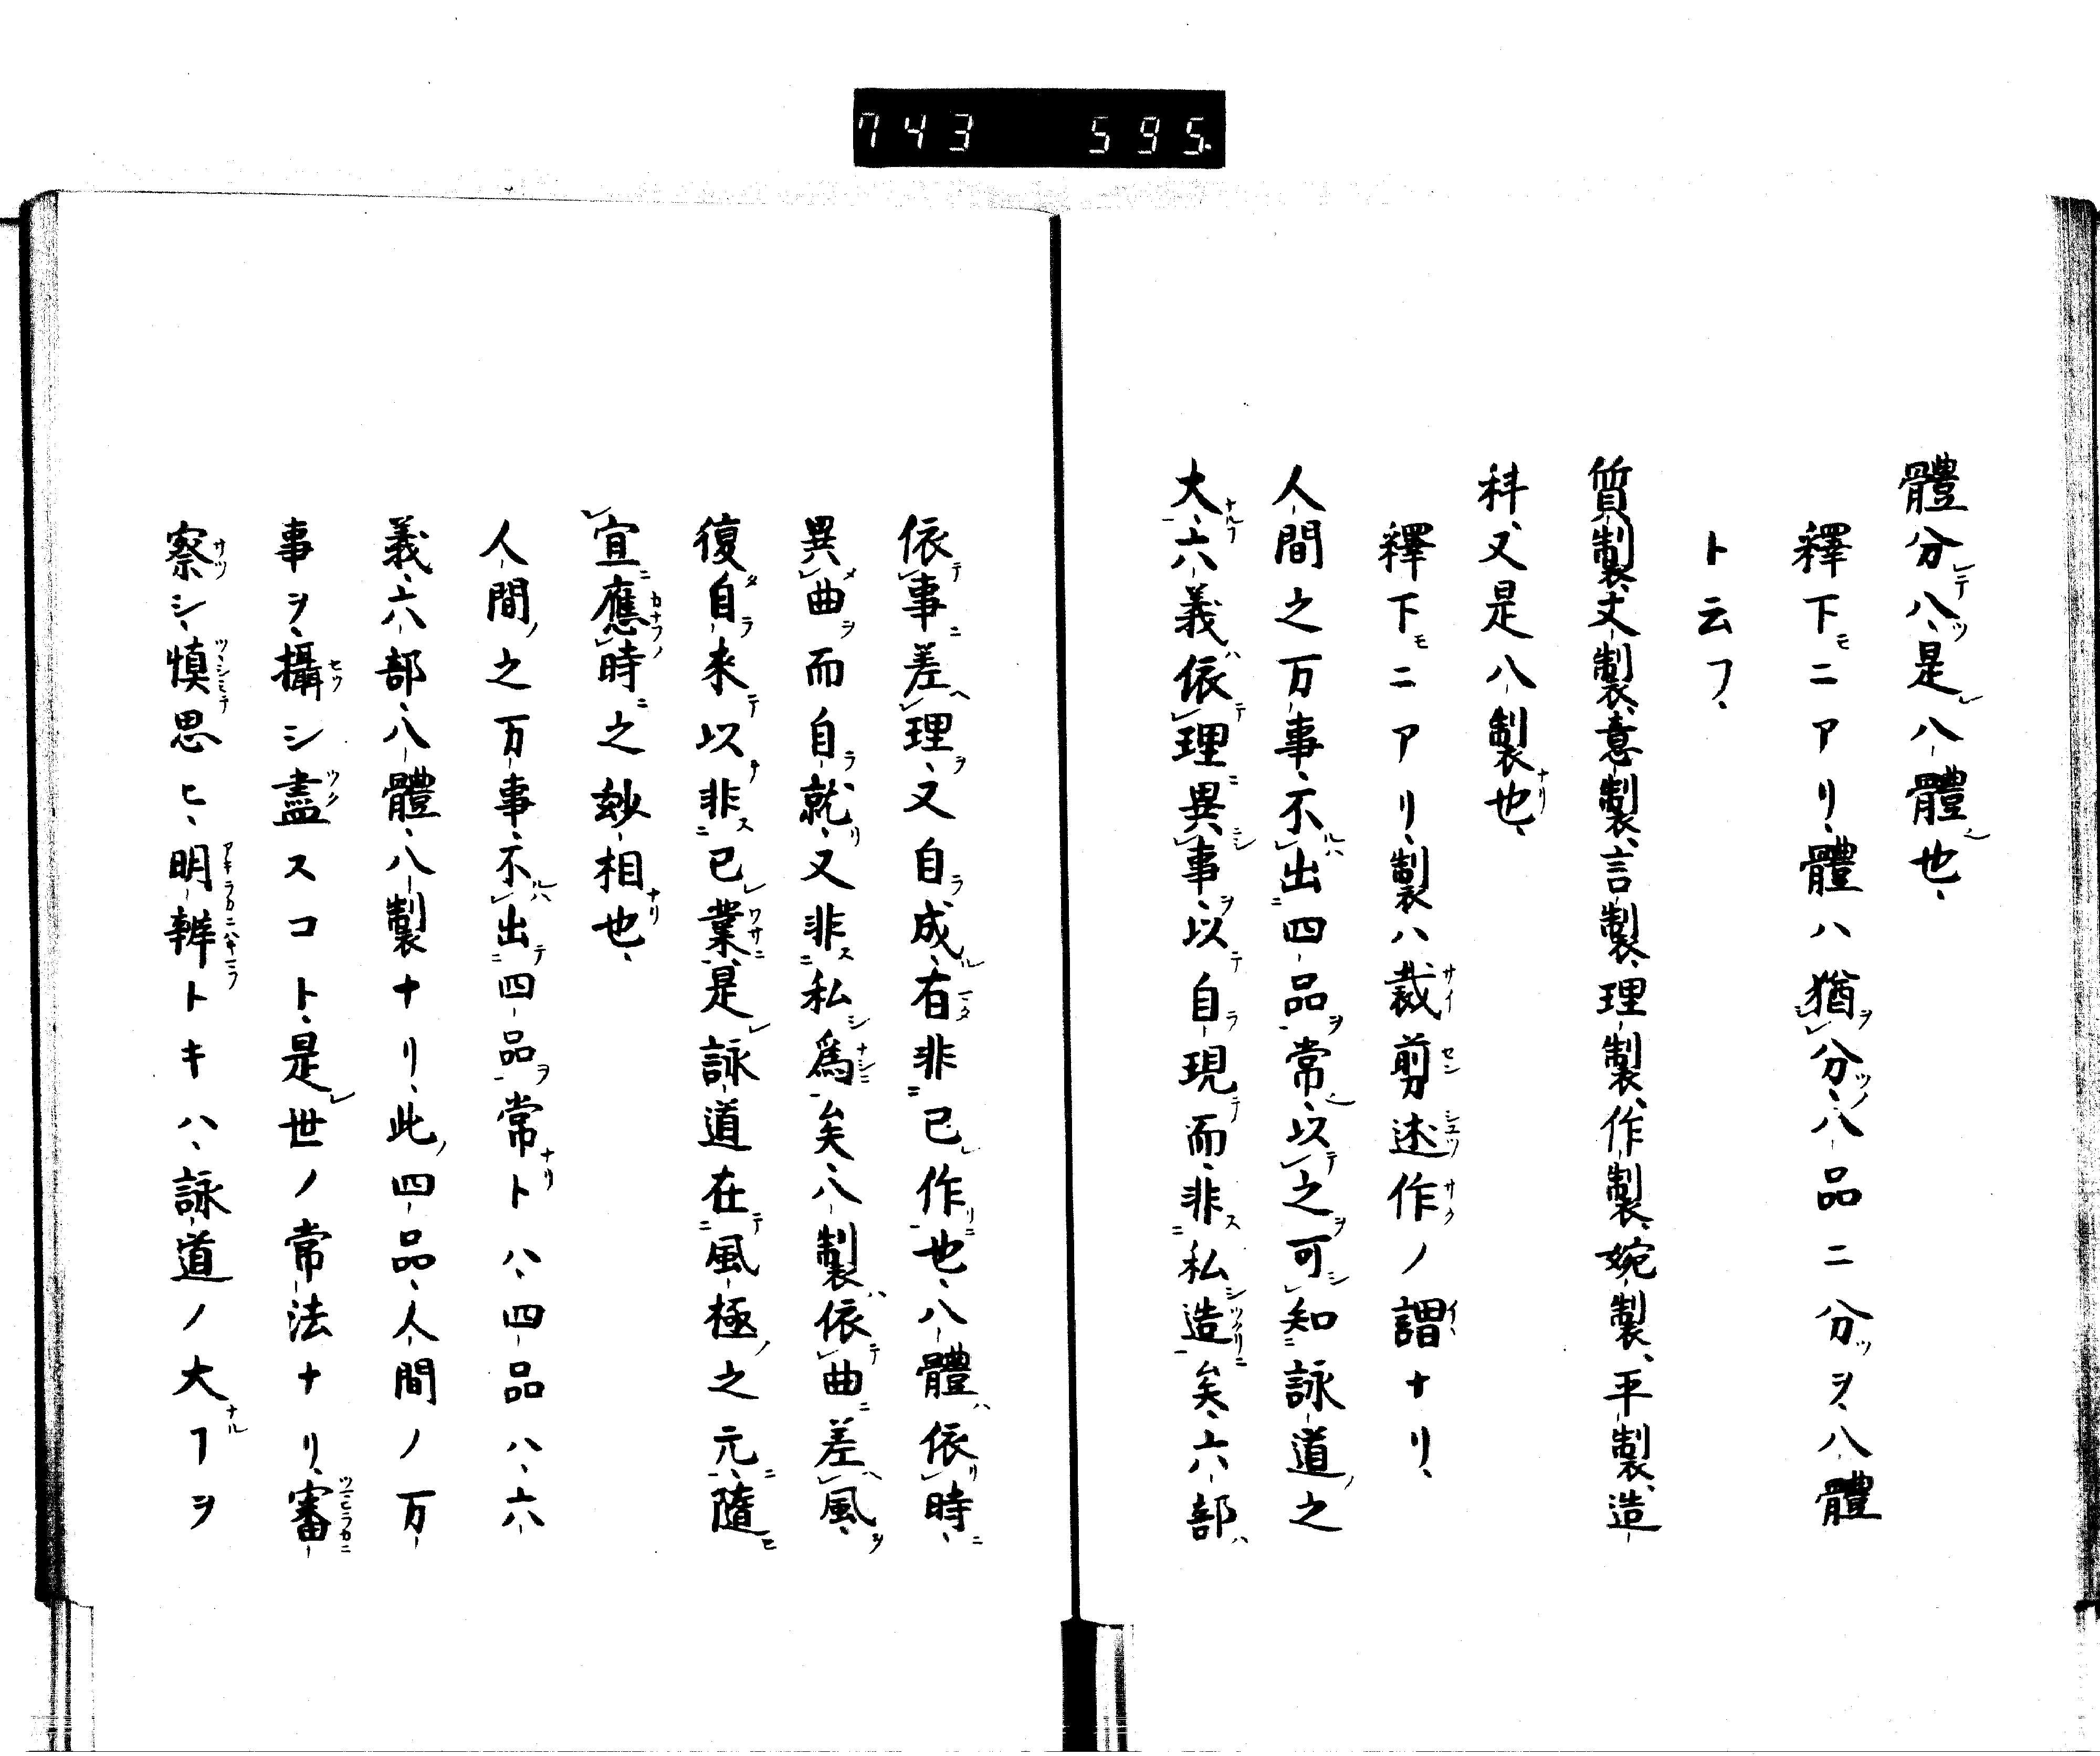 743 595
體分八是八體也、
釋下ニアリ、體ハ猶分八品ニ分ヲ、八體
ト云フ、
質製、丈製、意製、言製、理製、作製、婉製、平製、造
科、又是八製也、
釋下ニアリ、製ハ裁剪述作ノ謂ナリ、
人間之万事、不出四品常、以之可知詠道之
大、六義依理異事、以自現而非私造矣、六部
依事差理、又自成、有非已作也、八體依時、
異曲而自就、又非私爲矣、八製依曲差風、
復自来以非已業、是詠道在風極之元、隨
宜應時之玅相也、
人間之万事、不出四品常トハ、四品ハ、六
義、六部、八體、八製ナリ、此四品、人間ノ万
事ヲ、攝シ盡スコト、是世ノ常法ナリ、審
察シ、慎思ヒ、明辨トキハ、詠道ノ大ヿヲ